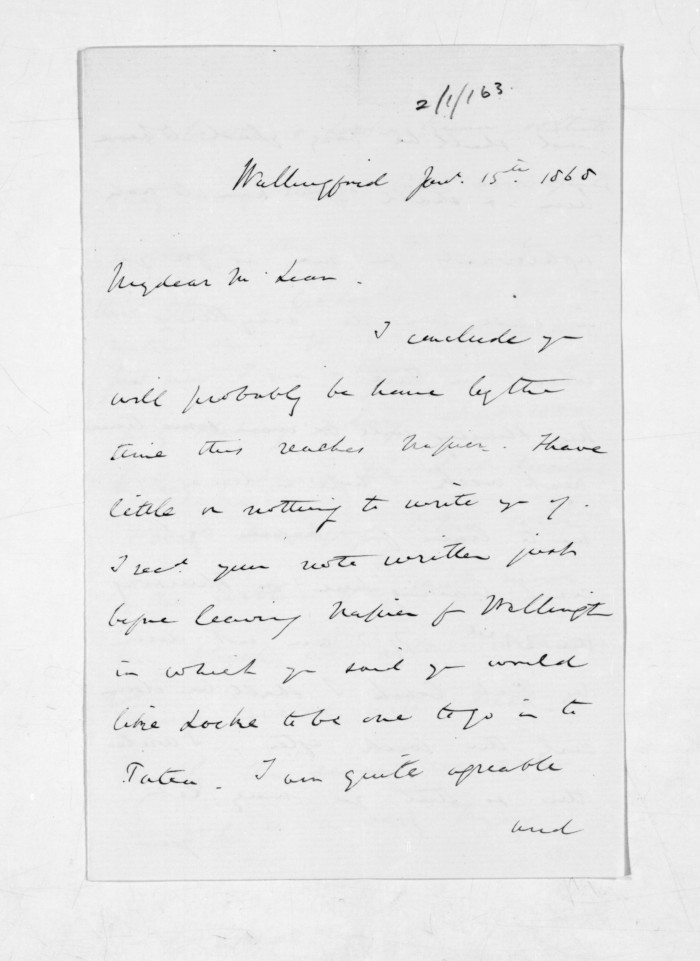 2/1/163.
Wallingford Jany. 15th. 1868
My dear Mc Lean.
I conclude yr
will probably be home by the
time this reaches Napier. I have
little or nothing to write yr of.
I recd. your note written just
before leaving Napier for Wellington
in which yr said yr would
like Locke to be one to go in to
I am quite agreeable
and